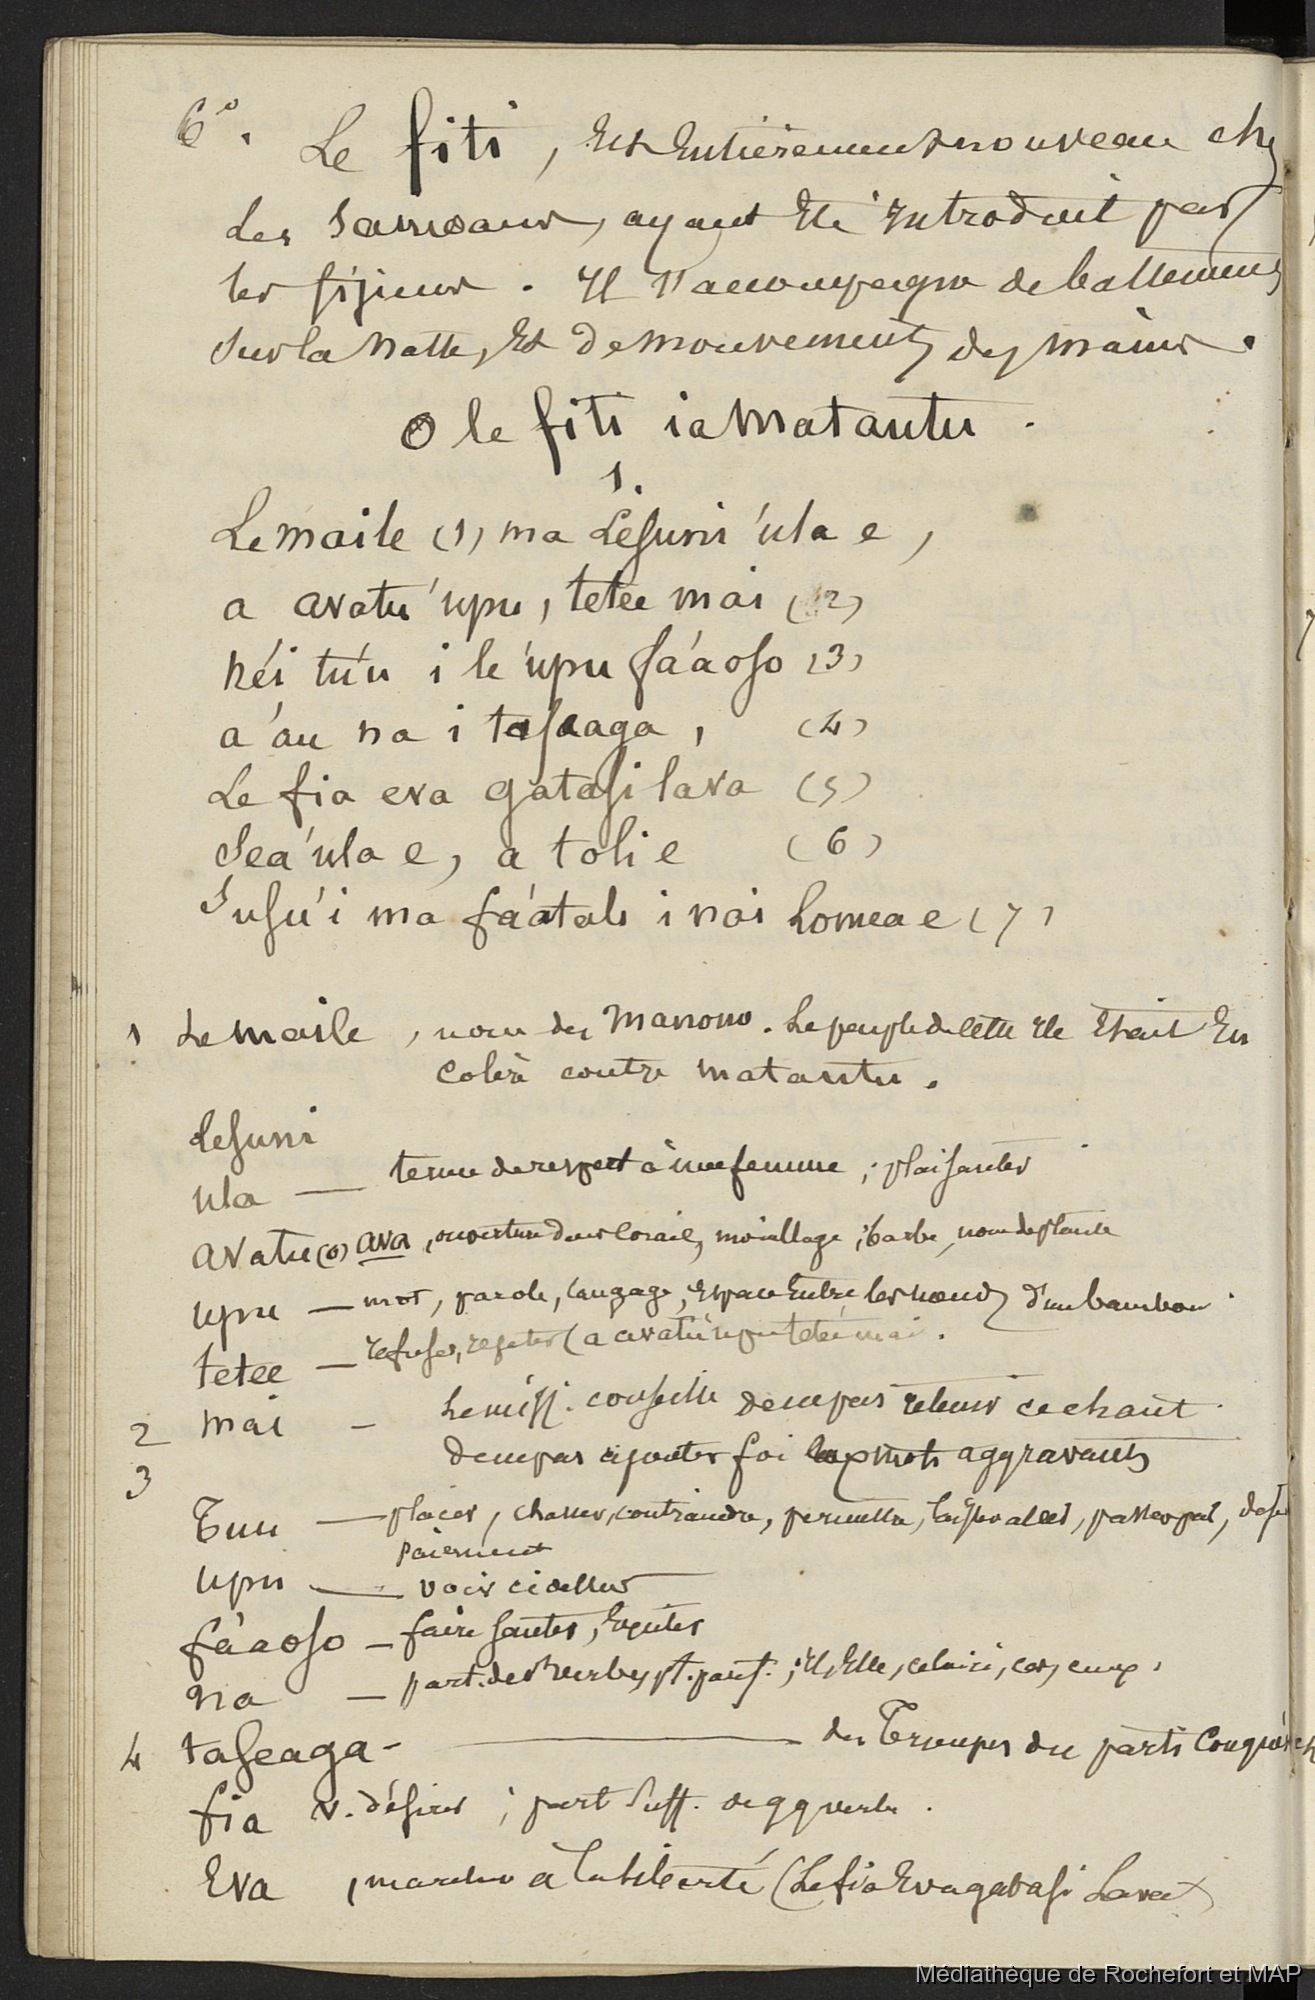 6°. Le fiti, Est Entièrement nouveau chez
les Samoans, ayant Eté introduit par
les fijiens. Il s'accompagne de battements
sur la natte, Et de mouvements des mains.
O le fiti ia Matautu.
1.
Le maile (1) ma Lesuni 'ula e,
a avatu 'upu, tetee mai (2)
néi tú'u i le 'upu fa'aoso (3)
a 'au na i taseaga, (4)
Le fia eva gatasi lava (5)
Sea 'ula e, a toli e (6)
Susu'i ma fa'atali i nai Lomea e (7)
1 Le maile, nom des Manono. Le peuple de cette Ile Etait En
colère contre matautu.
Lesuni
ula — terme de respect à une femme; plaisanter
avatu (o) ava, ouverture dans corail, mouillage; barbe, nom de plante
upu — mot, parole, langage, Espace Entre les noeuds d'un bambou
tetee — refuser, rejeter (a avatu 'upu tetee mai.
2 mai — Le miss. conseille de ne pas retenir ce chant
3 de ne pas ajouter foi aux mots aggravants
Tuu — placer, chasser, contraindre, permettre, laisser aller, passer par,
paiement
upu — voir ci dessus
fa'aoso — faire sauter, Exciter
na — part. des verbes, pt. pass.; Il, Elle, celui ci, ces, eux,
4 taseaga — des Troupes du parti Conquérant
fia v. désirer; part suff. de qq verbe.
Eva, marcher à la liberté (Le fia Eva gatasi Lava)
Médiathèque de Rochefort et MAP